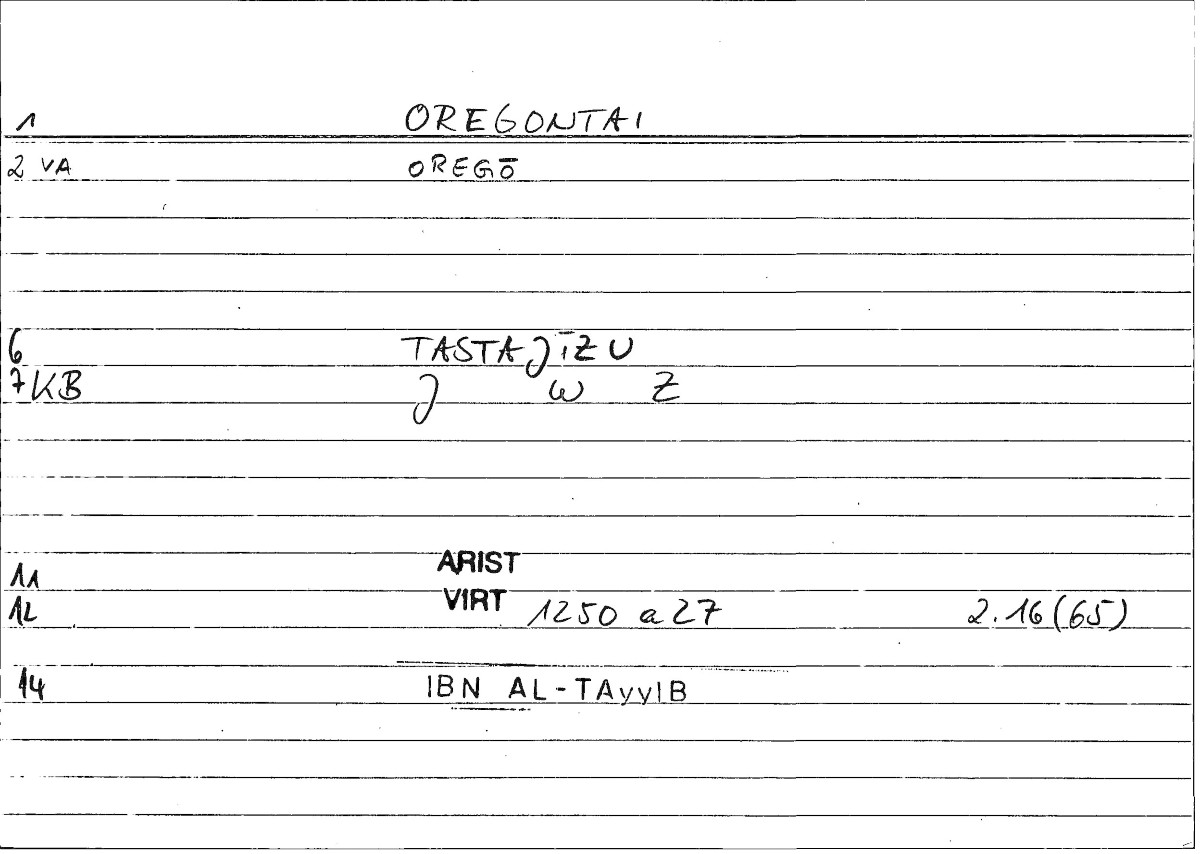 1 OREGONTAI
2 VA OREGŌ
6 TASTAJĪZU
7 KB J W Z
11 ARIST
12 VIRT 1250 a 27 2.16(65)
14 IBN AL-TAyyIB